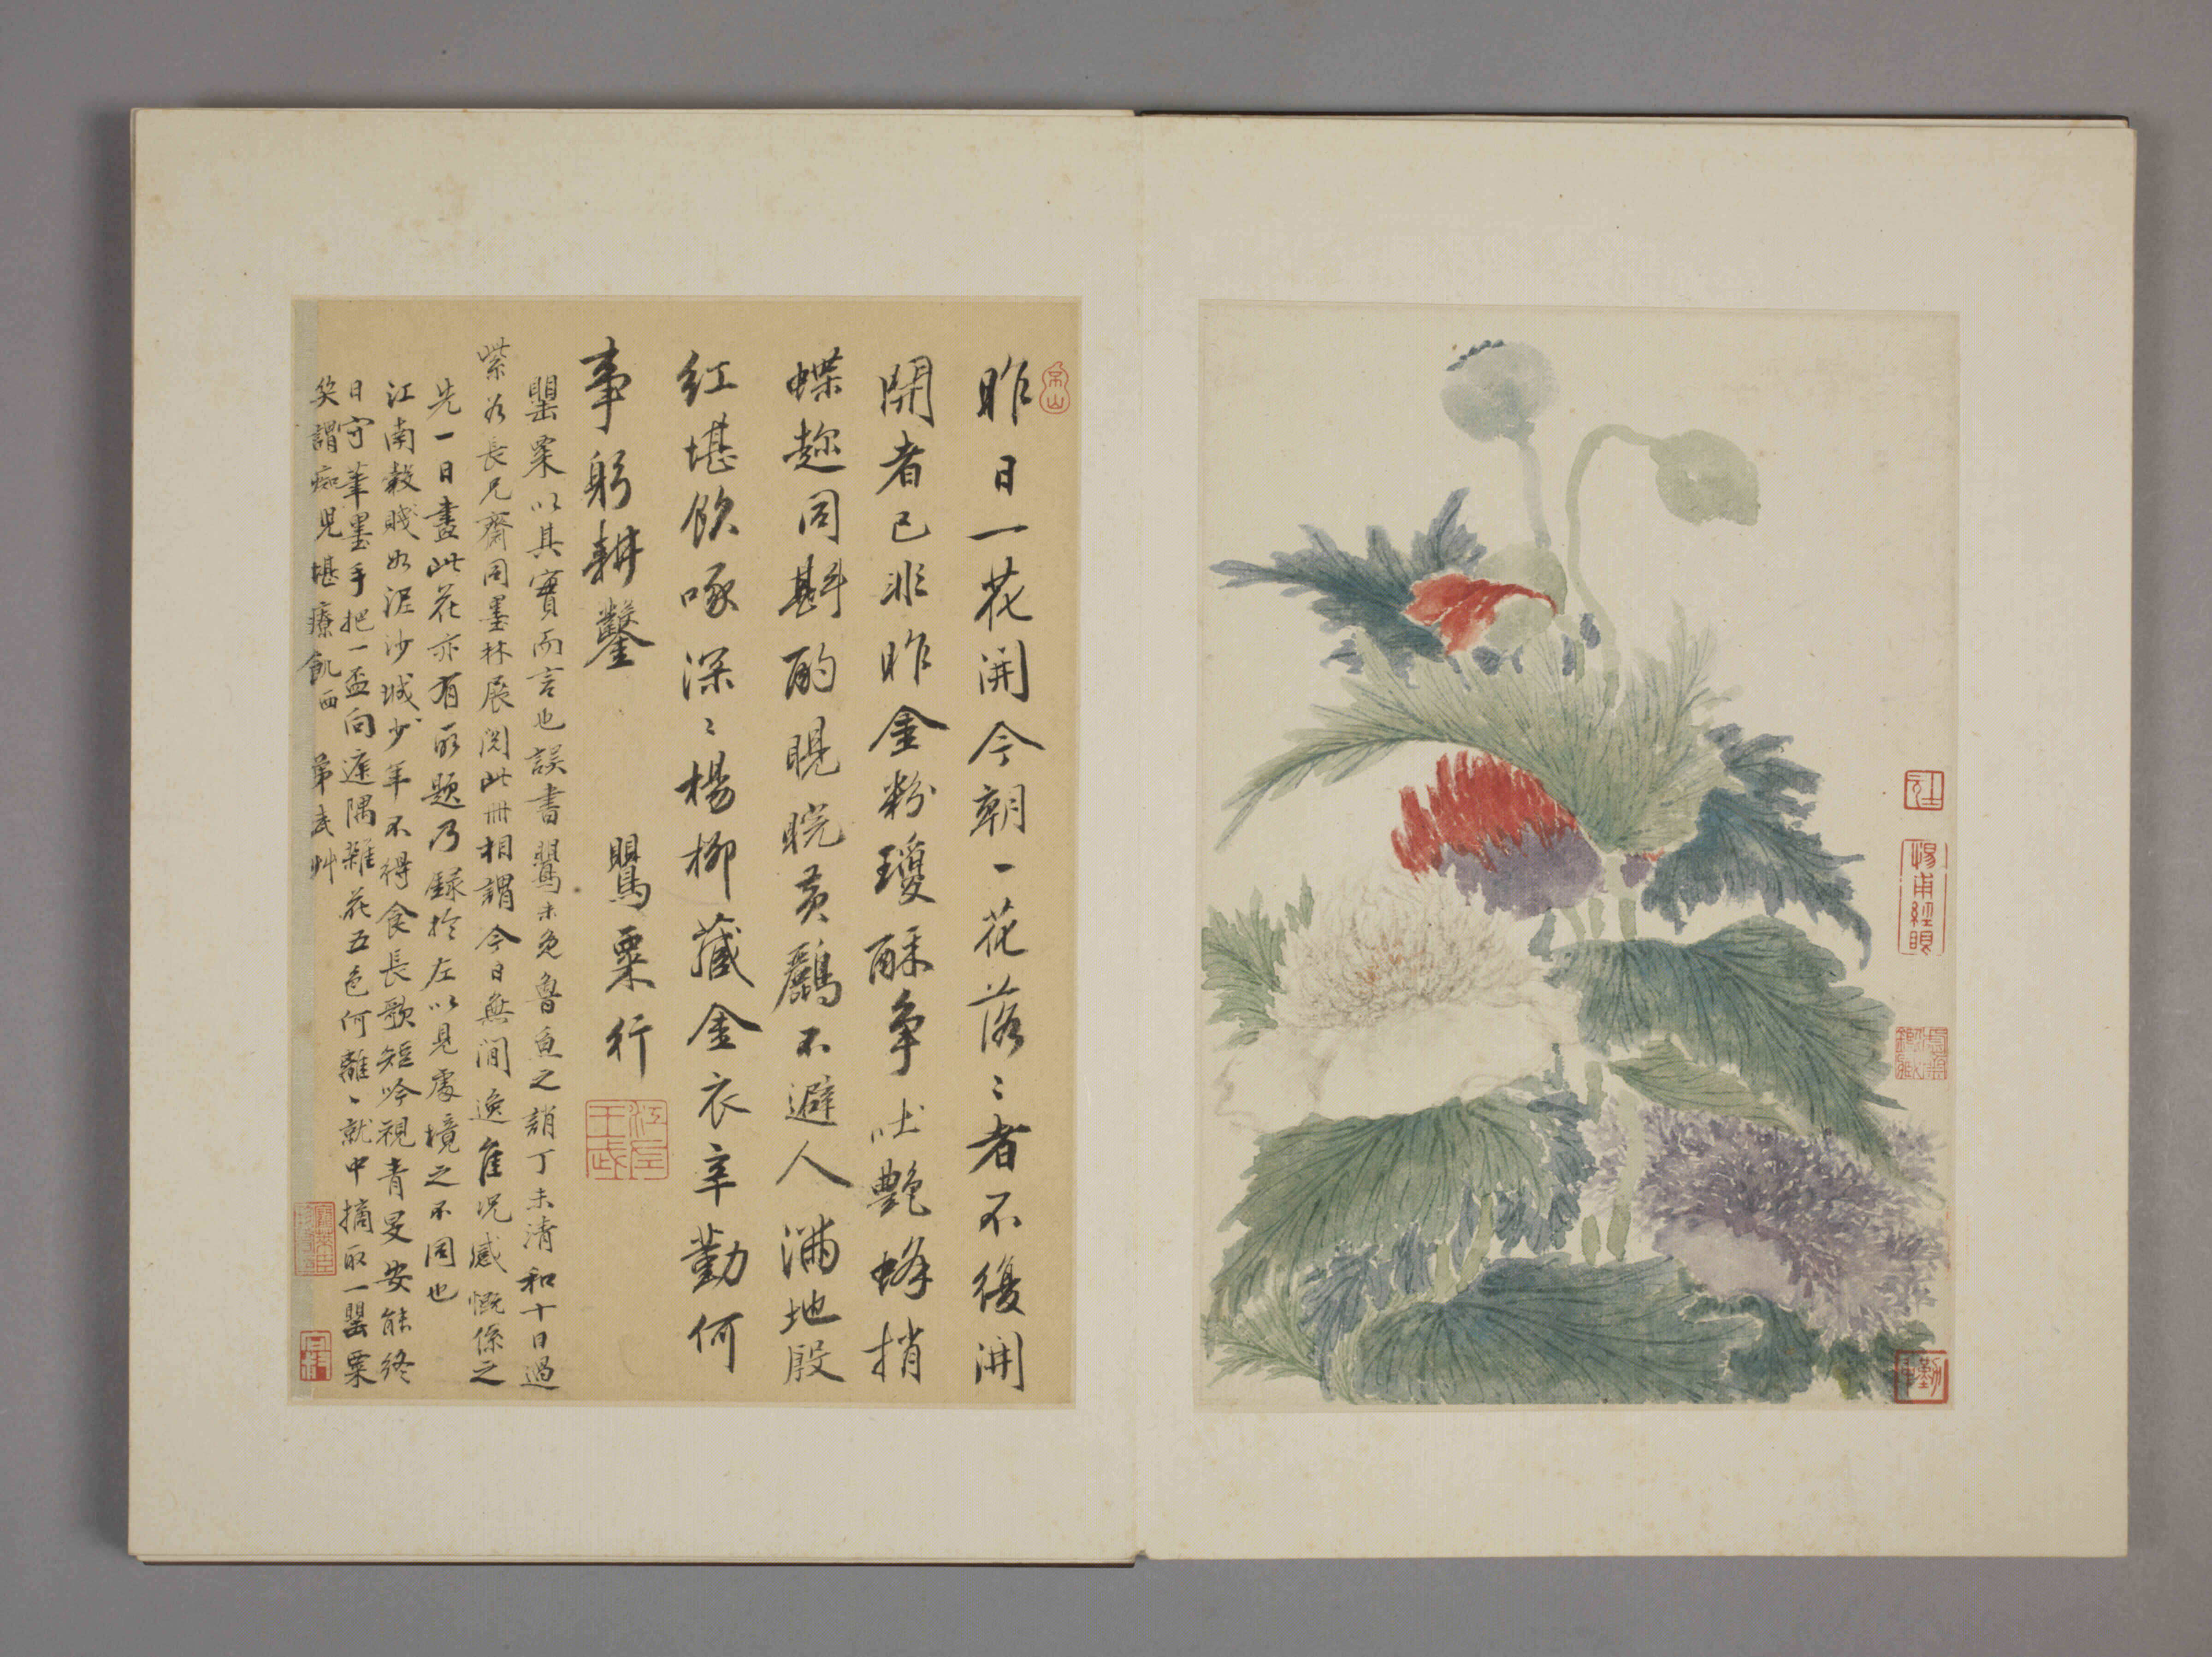 昨日一花開今朝一花落〻者不復開
開者已非昨金粉瓊酥爭吐艷蜂捎
蝶趂同斟酌睍睆黃鸝不避人滿地殷
紅堪飲啄深〻楊柳藏金衣辛勤何
事躬耕鑿
鸎粟行
罌粟以其實而言也誤書鸎未免魯魚之誚丁未清和十日過
紫為長兄齋同墨林展閱此冊相謂今日無閒逸隹況感慨係之
先一日畫此花亦有所題乃錄於左以見處境之不同也
江南穀賤如泥沙城少年不得食長歌短吟視青旻安能終
日守筆墨手把一盃向庭隅雜花五色何離〻就中摘取一罌粟
笑謂痴兒堪療飢西 弟武艸
江左
王武
惕甫經眼